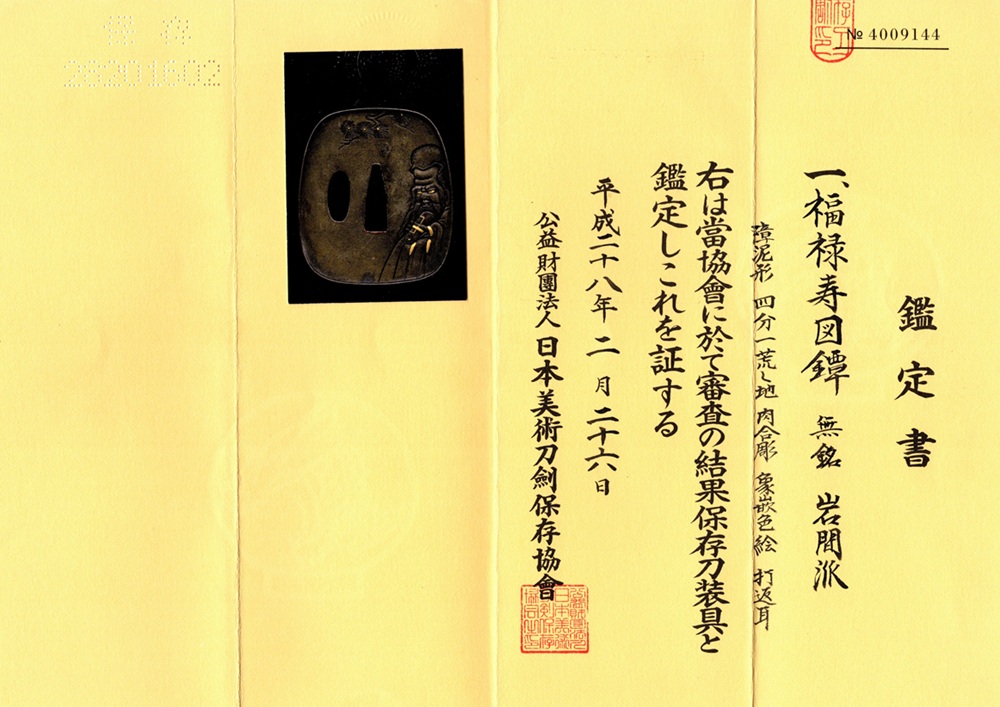 № 4009144
鑑定書
一、福禄寿図鐔 無銘 岩間派
障泥形 四分一荒し地 肉合彫 象嵌色絵 打返耳
右は當協會に於て審査の結果保存刀装具と
鑑定しこれを証する
平成二十八年二月二十六日
公益財團法人日本美術刀劍保存協會
保存
28201602